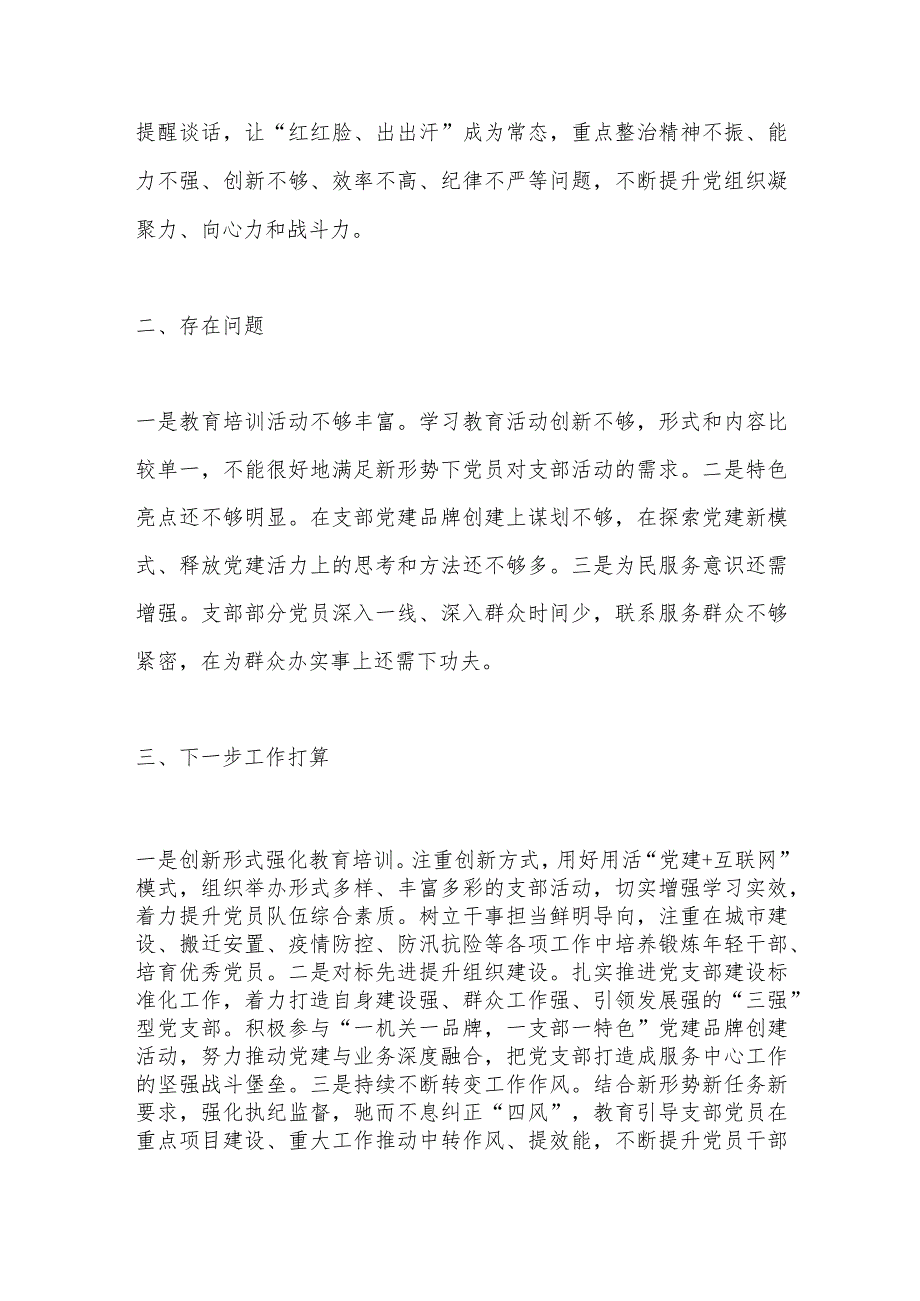 提醒谈话，让“红红脸、出出汗”成为常态，重点整治精神不振、能
力不强、创新不够、效率不高、纪律不严等问题，不断提升党组织凝
聚力、向心力和战斗力。
二、存在问题
一是教育培训活动不够丰富。学习教育活动创新不够，形式和内容比
较单一，不能很好地满足新形势下党员对支部活动的需求。二是特色
亮点还不够明显。在支部党建品牌创建上谋划不够，在探索党建新模
式、释放党建活力上的思考和方法还不够多。三是为民服务意识还需
增强。支部部分党员深入一线、深入群众时间少，联系服务群众不够
紧密，在为群众办实事上还需下功夫。
三、下一步工作打算
一是创新形式强化教育培训。注重创新方式，用好用活“党建+互联网”
模式，组织举办形式多样、丰富多彩的支部活动，切实增强学习实效，
着力提升党员队伍综合素质。树立干事担当鲜明导向，注重在城市建
设、搬迁安置、疫情防控、防汛抗险等各项工作中培养锻炼年轻干部、
培育优秀党员。二是对标先进提升组织建设。扎实推进党支部建设标
准化工作，着力打造自身建设强、群众工作强、引领发展强的“三强”
型党支部。积极参与“一机关一品牌，一支部一特色”党建品牌创建
活动，努力推动党建与业务深度融合，把党支部打造成服务中心工作
的坚强战斗堡垒。三是持续不断转变工作作风。结合新形势新任务新
要求，强化执纪监督，驰而不息纠正“四风”，教育引导支部党员在
重点项目建设、重大工作推动中转作风、提效能，不断提升党员干部